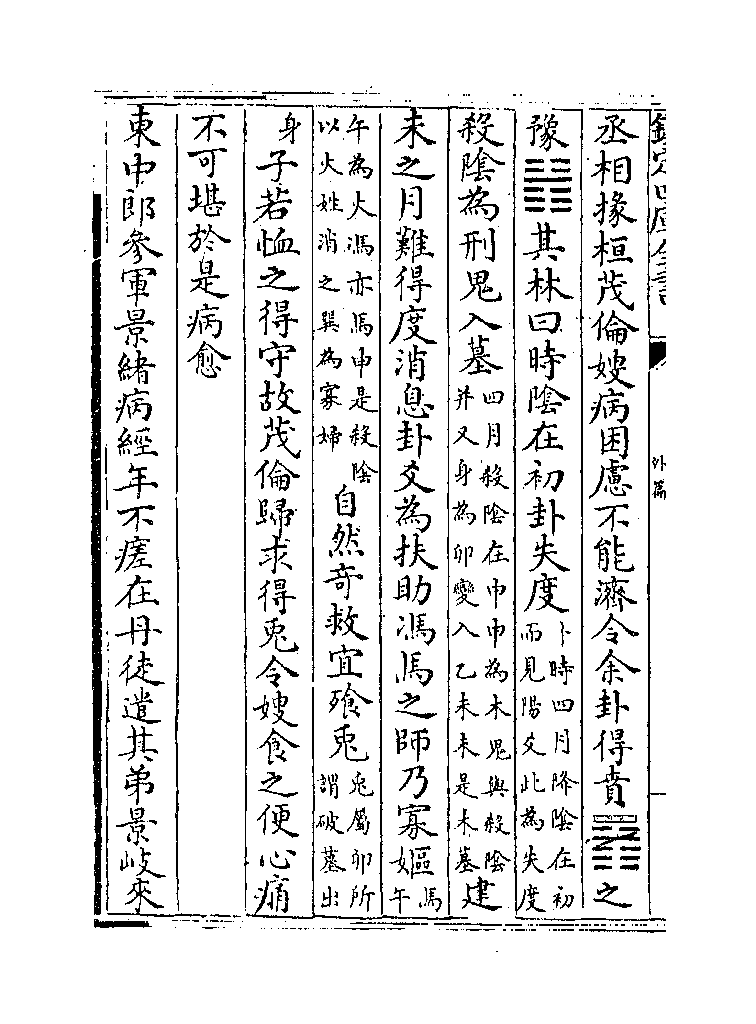 欽定四庫全書
外篇
丞相掾桓茂倫嫂病困慮不能濟令余卦得賁䷕之
豫䷏其林曰時陰在初卦失度卜時四月降陰在初而見陽爻此為失度
殺陰為刑鬼入墓四月殺陰在申申為木鬼與殺陰并又身為卯變入乙未未是木墓建
未之月難得度消息卦爻為扶助馮馬之師乃寡嫗馮午
午為火馮亦馬申是殺陰以火姓消之巽為寡婦自然奇救宜飱兎兎屬卯所謂破墓出
身子若恤之得守故茂倫歸求得兎令嫂食之便心痛
不可堪於是病愈
東中郎參軍景緒病經年不瘥在丹徒遣其弟景岐來